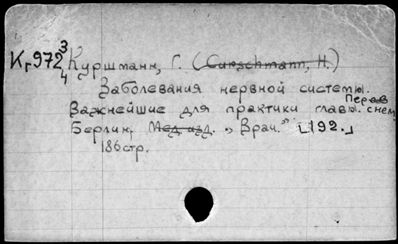 Кг972 3/4 Куршманн, Г. (Curschmann, H.)
Заболевания нервной системы.
Важнейшие для практики главы. Перев. с нем.
Берлин, Мед.изд. "Врач." [192.]
186стр.